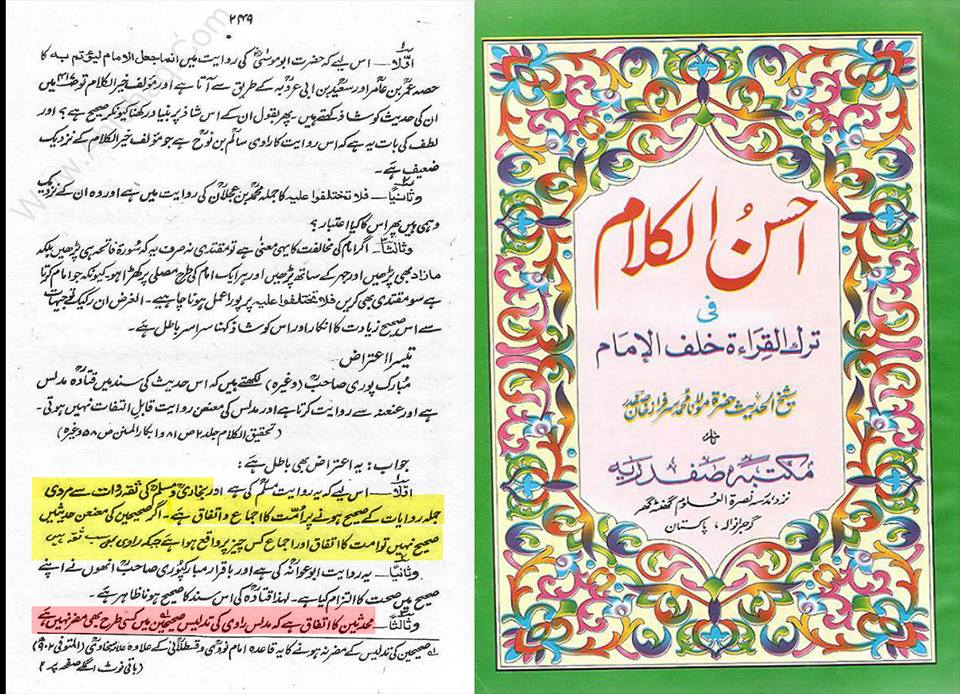 ۲۴۹
اوّلاً — اس لیے کہ حضرت ابو موسٰیؓ کی روایت میں انما جعل الامام لیؤتم بہ کا
حصہ عمرؒ بن عامرؒ اور سعیدؒ بن ابی عروبہ کے طریق سے آتا ہے اور مؤلف خیر الکلام میں
ان کی حدیث کو شاذ کہتے ہیں۔ پھر بقول ان کے اس شاذ پر بنیاد رکھنا کیونکر صحیح ہے؟ اور
لطف کی بات یہ ہے کہ اس روایت کا راوی سالمؒ بن نوحؒ ہے جو مؤلف خیر الکلام کے نزدیک
ضعیف ہے۔
وثانیاً — فلا تختلفوا علیہ کا جملہ محمدؒ بن عجلانؒ کی روایت میں ہے اور وہ ان کے نزدیک
وہمی ہیں پھر اس کا کیا اعتبار؟
وثالثاً — اگر امام کی مخالفت کا یہی معنٰی ہے تو مقتدی نہ صرف یہ کہ سورۃ فاتحہ ہی پڑھیں بلکہ
مازاد بھی پڑھیں اور جہر کے ساتھ پڑھیں اور ہر ایک امام کی طرح مصلی پر کھڑا ہو۔ کیونکہ جو امام کرتا
ہے سو مقتدی بھی کریں فلا تختلفوا علیہ پر پورا عمل ہونا چاہیے۔ الغرض ان رکیک توجیہات
سے اس صحیح زیادت کا انکار اور اس کو شاذ کہنا سراسر باطل ہے۔
تیسرا اعتراض
مبارک پوری صاحبؒ (وغیرہ) لکھتے ہیں کہ اس حدیث کی سند میں قتادہؒ مدلس
ہے اور عنعنہ سے روایت کرتا ہے اور مدلس کی معنعن روایت قابلِ التفات نہیں ہوتی۔
(تحقیق الکلام جلد ۲ ص ۸۱ و ابکار المنن ص ۵۸ وغیرہ)
جواب: یہ اعتراض بھی باطل ہے:
اوّلاً — اس لیے کہ یہ روایت مسلمؒ کی ہے اور بخاریؒ و مسلمؒ کی ثقہ روات سے مروی
جملہ روایات کے صحیح ہونے پر امّت کا اجماع و اتفاق ہے۔ اگر صحیحین کی معنعن حدیثیں
صحیح نہیں تو امت کا اتفاق اور اجماع کس چیز پر واقع ہوا ہے جبکہ راوی بھی سب ثقہ ہیں
وثانیاً — یہ روایت ابو عوانہؒ کی ہے اور باقرار مبارکپوری صاحبؒ انھوں نے اپنے
صحیح میں صحت کا التزام کیا ہے۔ لہٰذا قتادہؒ کی اس سند کا صحیح ہونا ظاہر ہے۔
وثالثاً — محدثین کا اتفاق ہے کہ مدلس راوی کی تدلیس صحیحین میں کسی طرح بھی مضر نہیں ہے
لہ صحیحین کی تدلیس کے مضر نہ ہونے کا یہ قاعدہ امام نوویؒ و قسطلانیؒ کے علاوہ علامہ سخاویؒ (المتوفی ۹۰۲)
(باقی نوٹ اگلے صفحہ پر)
احسنُ الکلام
فی
ترك القِراءة خلف الإمام
شیخ الحدیث حضرۃ مولانا محمد سرفراز خان صفدر
ناشر
مکتبہ صفدریہ
نزد مدرسہ نصرۃ العلوم گھنٹہ گھر
گوجرانوالہ، پاکستان